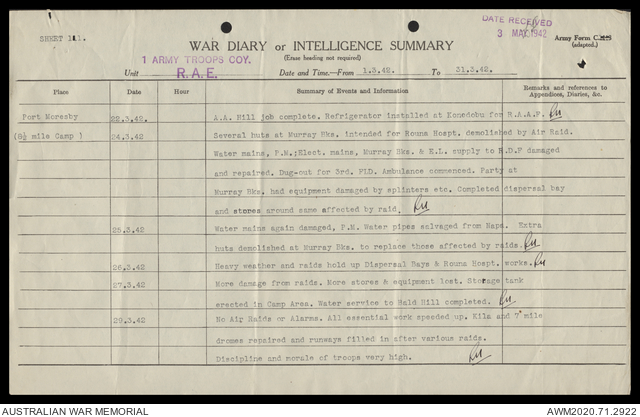 SHEET 111.
DATE RECEIVED
3 MAY 1942
WAR DIARY or INTELLIGENCE SUMMARY
Army Form
(adapted.)
(Erase heading not required)
1 ARMY TROOPS COY.
Unit R.A.E. Date and Time.—From 1.3.42. To 31.3.42.
Place Date Hour Summary of Events and Information Remarks and references to
Appendices, Diaries, &c.
Port Moresby 22.3.42. A.A. Hill job complete. Refrigerator installed at Konedobu for R.A.A.F.
(8½ mile Camp ) 24.3.42. Several huts at Murray Bks. intended for Rouna Hospt. demolished by Air Raid.
Water mains, P.M.;Elect. mains, Murray Bks. & K.L. supply to R.D.F damaged
and repaired. Dug-out for 3rd. FLD. Ambulance commenced. Party at
Murray Bks. had equipment damaged by splinters etc. Completed dispersal bay
and stores around same affected by raid.
25.3.42 Water mains again damaged, P.M. Water pipes salvaged from Bapa. Extra
huts demolished at Murray Bks. to replace those affected by raids.
26.3.42 Heavy weather and raids hold up Dispersal Bays & Rouna Hospt. works.
27.3.42 More damage from raids. More stores & equipment lost. Storage tank
erected in Camp Area. Water service to Bald Hill completed.
29.3.42 No Air Raids or Alarms. All essential work speeded up. Kila and 7 mile
dromes repaired and runways filled in after various raids.
Discipline and morale of troops very high.
AUSTRALIAN WAR MEMORIAL AWM2020.71.2922